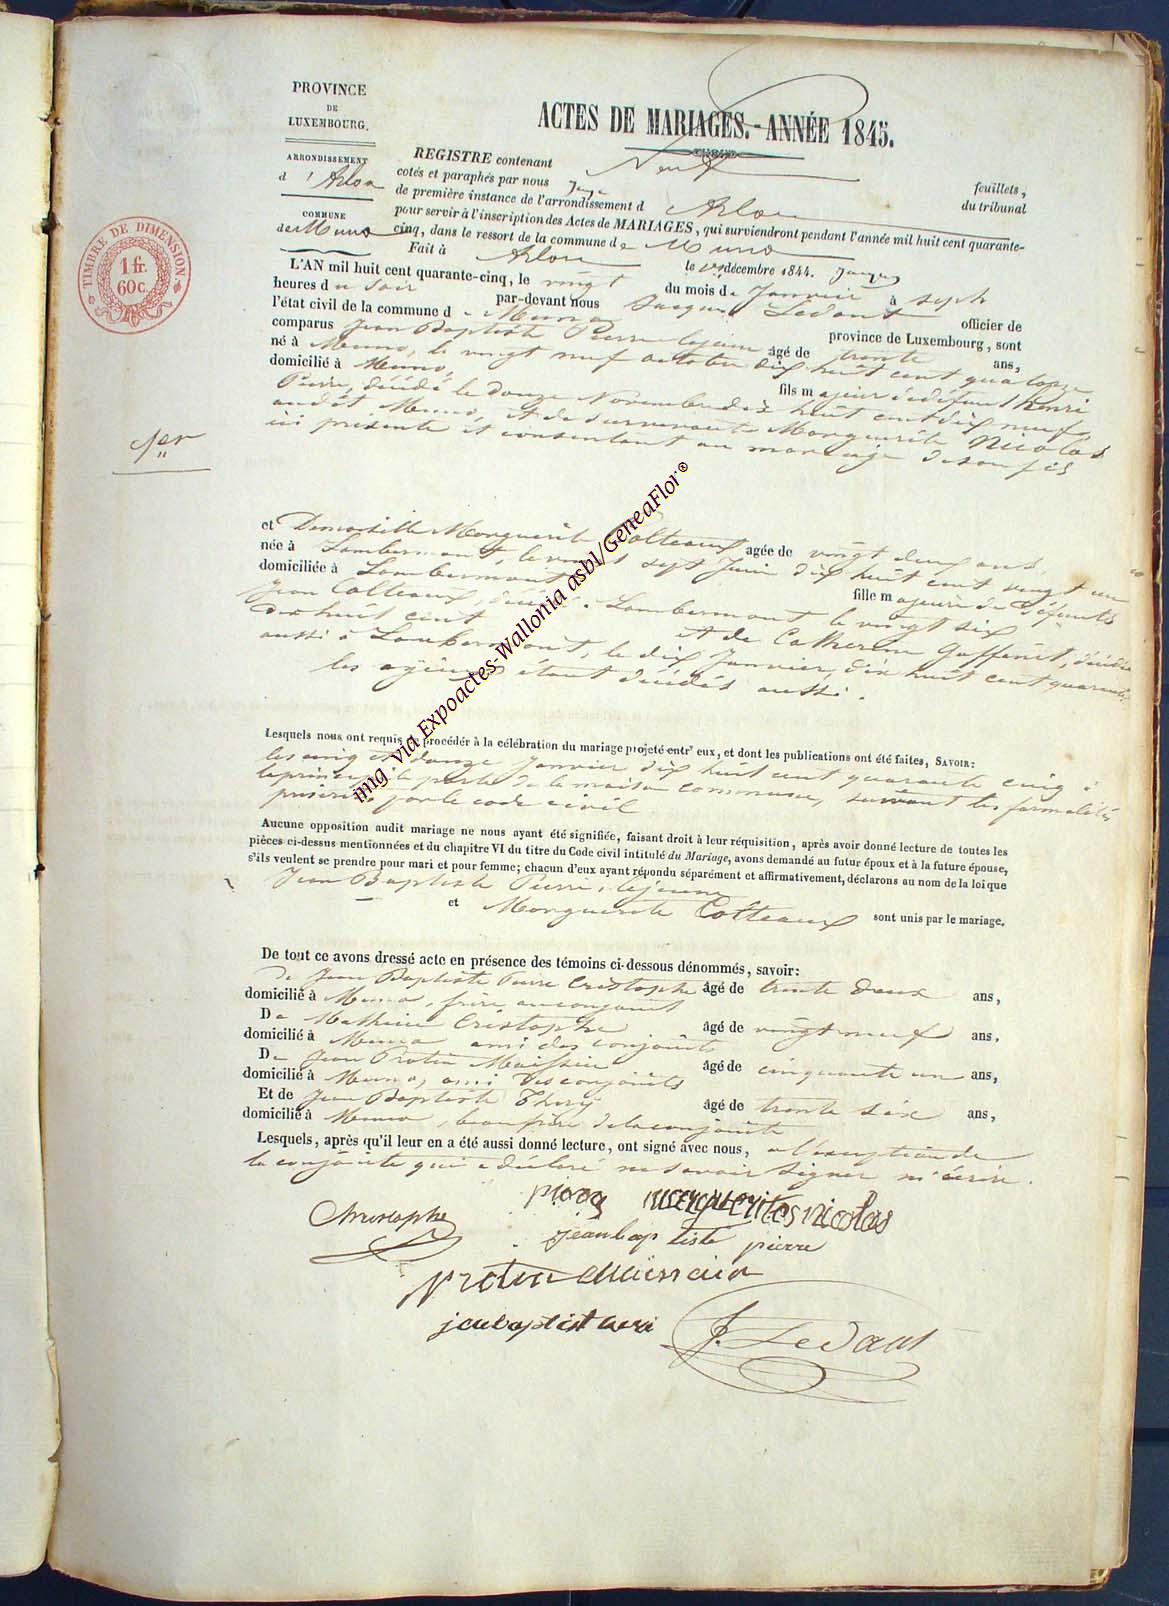 PROVINCE
DE
LUXEMBOURG.
ARRONDISSEMENT
d'Arlon
COMMUNE
de Muno
TIMBRE DE DIMENSION.
1 fr.
60 c.
ACTES DE MARIAGES. - ANNÉE 1845.
REGISTRE contenant Neuf feuillets,
cotés et paraphés par nous Juge du tribunal
de première instance de l'arrondissement d Arlon
pour servir à l'inscription des Actes de MARIAGES, qui surviendront pendant l'année mil huit cent quarante-
cinq, dans le ressort de la commune de Muno
Fait à Arlon le décembre 1844.
L'AN mil huit cent quarante-cinq, le vingt du mois de Janvier à sept
heures du soir par-devant nous Jacques Ledant officier de
l'état civil de la commune de Muno province de Luxembourg, sont
comparus Jean Baptiste Pierre lejeune âgé de trente ans,
né à Muno, le vingt neuf octobre dix huit cent quatorze
domicilié à Muno, fils majeur de défunt Henri
Pierre, décédé le douze Novembre dix huit cent dix neuf
audit Muno, et de survenante Marguerite Nicolas
ici présente et consentant au mariage de son fils
1er
et Demoiselle Marguerite Colteaux agée de vingt deux ans
née à Lambermont, le vingt sept Juin dix huit cent vingt un
domiciliée à Lambermont fille majeure de défunts
Jean Colteaux, décédé à Lambermont le vingt six
dix huit cent et de Catherine Goffinet, décédée
aussi à Lambermont, le dix Janvier, dix huit cent quarante,
les ayeux étant décédés aussi.
Lesquels nous ont requis de procéder à la célébration du mariage projeté entr' eux, et dont les publications ont été faites, SAVOIR:
les cinq et douze Janvier dix huit cent quarante cinq à
la principale porte de la maison commune, suivant les formalités
prescrites par le code civil
Aucune opposition audit mariage ne nous ayant été signifiée, faisant droit à leur réquisition, après avoir donné lecture de toutes les
pièces ci-dessus mentionnées et du chapitre VI du titre du Code civil intitulé du Mariage, avons demandé au futur époux et à la future épouse,
s'ils veulent se prendre pour mari et pour femme; chacun d'eux ayant répondu séparément et affirmativement, déclarons au nom de la loi que
Jean Baptiste Pierre, lejeune
et Marguerite Colteaux sont unis par le mariage.
De tout ce avons dressé acte en présence des témoins ci-dessous dénommés, savoir:
de Jean Baptiste Pierre Cristophe âgé de trente deux ans,
domicilié à Muno, frère au conjoint
De Mathieu Cristophe âgé de vingt neuf ans,
domicilié à Muno ami des conjoints
De Jean Protin Maissin âgé de cinquante un ans,
domicilié à Muno, ami des conjoints
Et de Jean Baptiste Thiry âgé de trente six ans,
domicilié à Muno, beau frère de la conjointe
Lesquels, après qu'il leur en a été aussi donné lecture, ont signé avec nous, a l'exception de
la conjointe qui a déclaré ne savoir signer ni écrire.
Christophe
pierre marguerites nicolas
jean bap tiste pierre
Protin Maissin
jeanbaptist
J. Ledant
img. via Expoactes-Wallonia asbl/GeneaFlor®